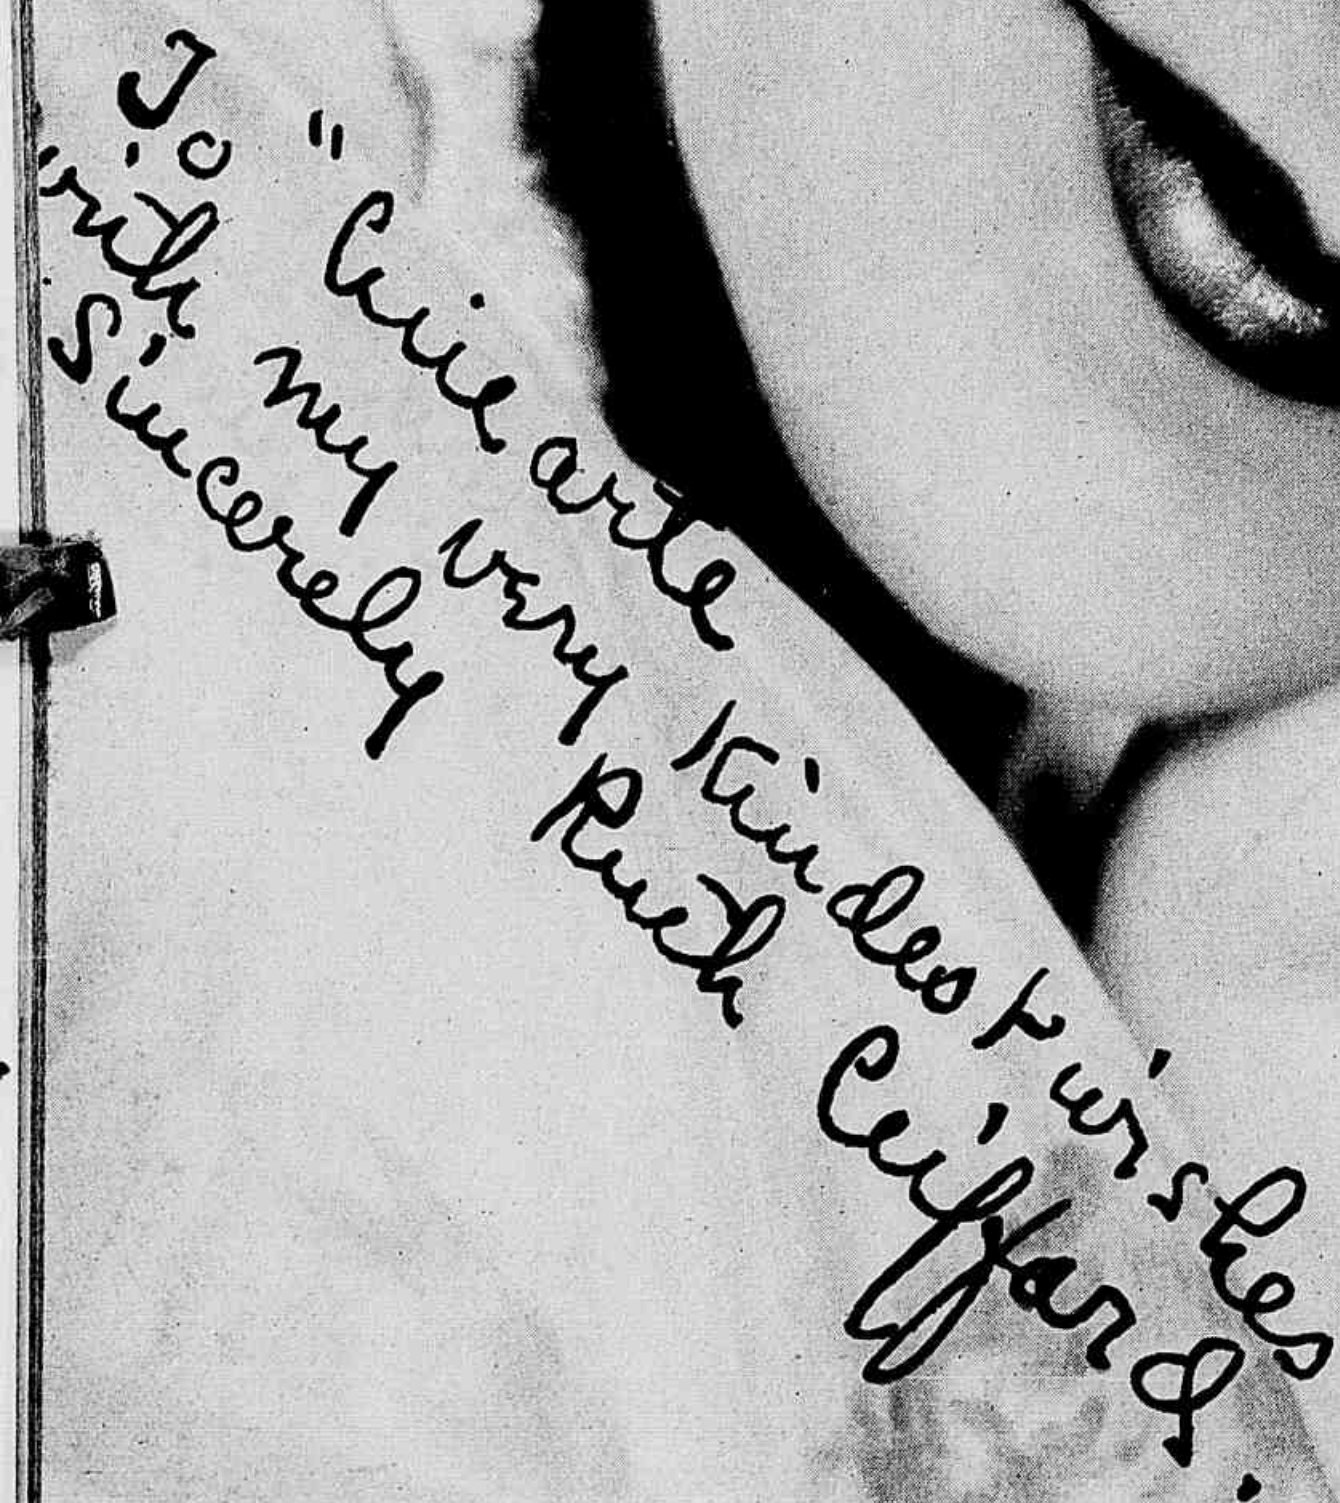 To "Cinearte
with my very Kindest wishes
Sincerely Ruth Clifford.